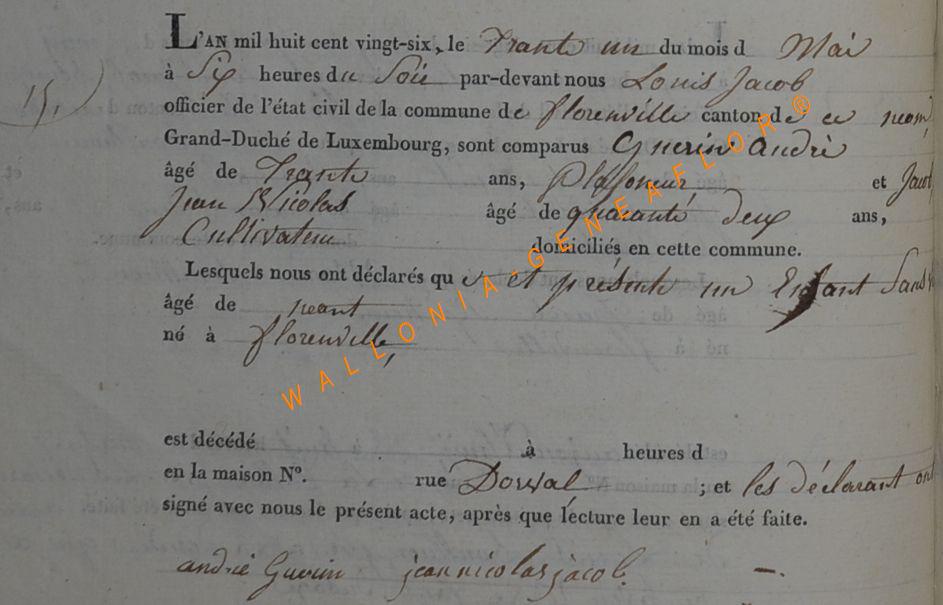 L'AN mil huit cent vingt-six, le Trant un du mois d Mai
à Six heures du Soir par-devant nous Louis Jacob
15,
officier de l'état civil de la commune de florenville canton de ce nom
Grand-Duché de Luxembourg, sont comparus Guerin André
âgé de Trante ans, Plafoneur et Jacob
Jean Nicolas âgé de quarante deux ans,
Cultivateur domiciliés en cette commune.
Lesquels nous ont déclarés qu et présenté un Enfant Sans
âgé de neant
né à florenville,
est décédé à heures d
en la maison N°. rue Dorval ; et les déclarant ont
signé avec nous le présent acte, après que lecture leur en a été faite.
andré Guerin jean nicolas jacob.
WALLONIA-GENEAFLOR®